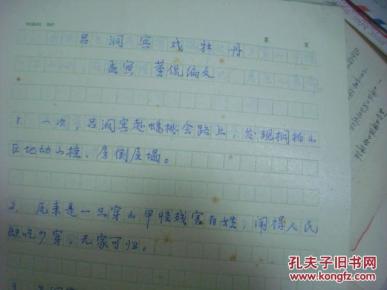 吕洞宾戏牡丹
孟宾 董侃编文
1. 一次，吕洞宾赴蟠桃会路上，发现桐柏山
区地动山摇，房倒屋塌。
2. 原来是一只穿山甲怪残害百姓，闹得人民
缺吃少穿，无家可归。
孔夫子旧书网